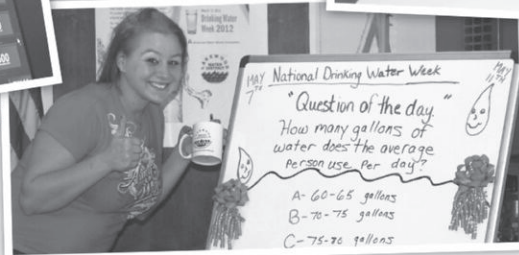 Drinking Water
Week 2012
MAY
7TH
National Drinking Water Week
MAY
11TH
"Question of the day."
How many gallons of
water does the average
person use per day?
A- 60-65 gallons
B- 70-75 gallons
C- 75-80 gallons